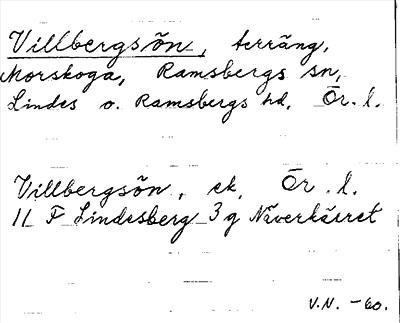 Villbergsön, terräng,
Morskoga, Ramsbergs sn,
Lindes o. Ramsbergs hd, Ör. l.
Villbergsön, ek. Ör. l.
11 F Lindesberg 3 g Näverkärret
V.N. -60.